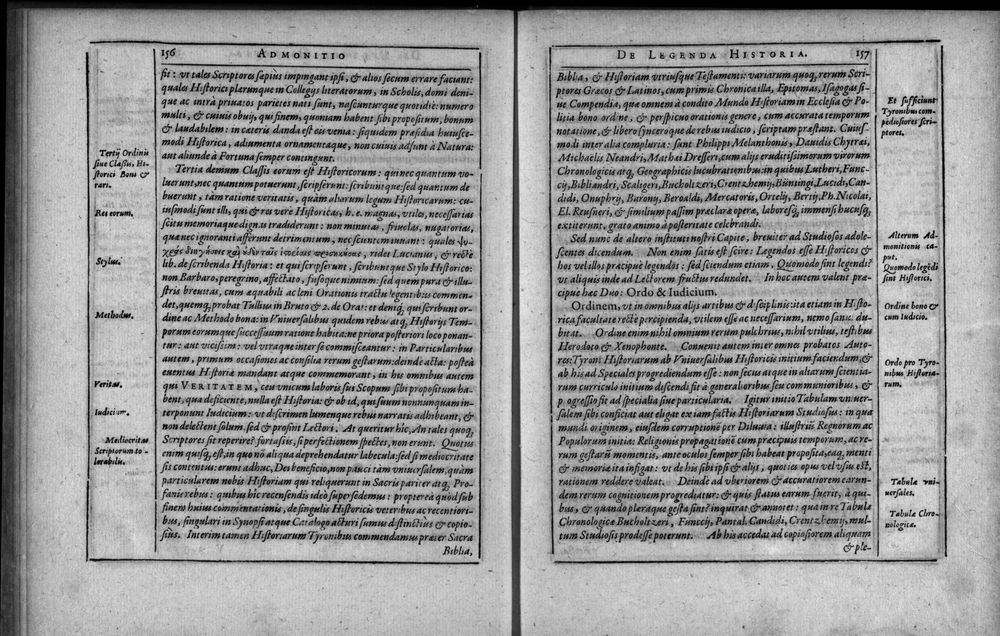 156 ADMONITIO
sit: vt tales Scriptores sæpius impingant ipsi, & alios secum errare faciant:
quales Historici plerunque in Collegijs literatorum, in Scholis, domi deni-
que ac intrà priuatos parietes nati sunt, nascunturque quotidiè: numero
multi, & cuiuis obuij, qui finem, quoniam habent sibi propositum, bonum
& laudabilem: in cæteris danda est eis venia: siquidem præsidia huiusce-
modi Historica, adiumenta ornamentaque, non cuiuis adsunt à Natura:
aut aliunde à Fortuna semper contingunt.
Tertia demum Classis eorum est Historicorum: qui nec quantum vo-
luerunt, nec quantum potuerunt, scripserunt: scribunt que: sed quantum de
buerunt, tàm ratione veritatis, quàm aliarum legum Historicarum: cu-
iusmodi sunt illi, qui & res verè Historicas, h. e. magnas, vtiles, necessarias
scitu memoriaque dignas tradiderunt: non minutas, friuolas, nugatorias,
quæ nec ignorantì afferunt detrimentum, nec scienti emolumentum: quales
rides Lucianus, & rectè
lib. de scribenda Historia: et qui scripserunt, scribuntque Stylo Historico:
non Barbaro, peregrino, affectato, fusoque nimium: sed quem pura & illu-
stris breuitas, cum æquabili ac leni Orationis tractu legentibus commen-
det, quemq; probat Tullius in Bruto & 2. de Orat: et deniq; qui scribunt or-
dine ac Methodo bona: in Vniuersalibus quidem rebus atq; Historijs Tem-
porum eorumque successiuum ratione habita: ne priora posteriori loco ponan-
tur: aut vicissim: vel vtraque inter se commisceantur: in Particularibus
autem, primum occasiones ac consilia rerum gestarum: deinde acta: posteà
euentus Historiæ mandant atque commemorant, in his omnibus autem
qui VERITATEM, ceu vnicum laboris sui Scopum sibi propositum ha-
bent, qua deficiente, nulla est Historia: & ob id, qui suum nonnunquam in-
terponunt Iudicium: vt discrimen lumenque rebus narratis adhibeant, &
non delectent solùm, sed & prosint Lectori. At queritur hîc, An tales quoq;
Scriptores sit reperire? fortaßis, si perfectionem spectes, non erunt. Quotus
enim quisq; est, in quo nõ aliqua deprehendatur labecula: sed si mediocritate
sis contentus: erunt adhuc, Dei beneficio, non pauci tàm vniuersalem, quàm
particularem nobis Historiam qui reliquerunt in Sacris pariter atq; Pro-
fanis rebus: quibus hîc recensendis ideò supersedemus: propterea quòd sub
finem huius commentationis, de singulis Historicis veteribus ac recentiori-
bus, singulari in Synopsi atque Catalogo acturi sumus distinctiùs & copio-
siùs. Interim tamen Historiarum Tyronibus commendamus præter Sacra
Biblia,
Tertij Ordinis
siue Classis, Hi-
storici Boni &
rari.
Res eorum.
Stylus.
Methodus.
Veritas.
Iudicium.
Mediocritas
Scriptorum to-
lerabilis.
DE LEGENDA HISTORIA. 157
Biblia, & Historiam vtriusque Testamenti: variarum quoq; rerum Scri-
ptores Græcos & Latinos, cum primis Chronica illa, Epitomas, Isagogas si-
ue Compendia, quæ omnem à condito Mundo Historiam in Ecclesia & Po-
litia bono ordine, & perspicuo orationis genere, cum accurata temporum
notatione, & libero synceroque de rebus iudicio, scriptam præstant. Cuius-
modi inter alia complura: sunt Philippi Melanthonis, Dauidis Chytræi,
Michaelis Neandri, Mathæi Dresseri, cum alijs eruditißimorum virorum
Chronologicis atq; Geographicis lucubrationibus: in quibus Lutheri, Func-
cij, Bibliandri, Scaligeri, Bucholtzeri, Crentzhemij, Büntingi, Lucidi, Can-
didi, Onuphry, Barony, Beroaldi, Mercatoris, Ortelij, Bertij, Ph. Nicolai,
El. Reusneri, & similium passim præclara opera, laboresq; immensi hucusq;
extiterunt, grato animo à posteritate celebrandi.
Sed nunc de altero instituti nostri Capite, breuiter ad Studiosos adole-
scentes dicendum. Non enim satis est scire: Legendos esse Historicos &
hos vel illos præcipuè legendos: sed sciendum etiam, Quomodo sint legendi?
vt aliquis inde ad Lectorem fructus redundet. In hoc autem valent præ-
cipuè hæc Duo: Ordo & Iudicium.
Ordinem, vt in omnibus alijs artibus & disciplinis: ita etiam in Histo-
rica facultate rectè percipienda, vtilem esse ac necessarium, nemo sanus du-
bitat. Ordine enim nihil omnium rerum pulchrius, nihil vtilius, testibus
Herodoto & Xenophonte. Conuenit autem inter omnes probatos Auto-
res: Tyroni Historiarum ab Vniuersalibus Historicis initium faciendum, &
ab his ad Speciales progrediendum esse: non secus atque in aliarum scientia-
rum curriculo initium discendi fit à generalioribus seu communioribus, &
progressio fit ad specialia siue particularia. Igitur initio Tabulam vniuer-
salem sibi conficiat aut eligat ex iam factis Historiarum Studiosus: in qua
mundi originem, eiusdem corruptionẽ per Diluuia: illustriũ Regnorum ac
Populorum initia: Religionis propagationẽ cum præcipuis temporum, ac re-
rum gestarũ momentis, ante oculos semper sibi habeat proposita, eaq; menti
& memoriæ ita infigat: vt de his sibi ipsi & alijs, quoties opus vel vsus est,
rationem reddere valeat. Deinde ad vberiorem & accuratiorem earun-
dem rerum cognitionem progrediatur: & quis status earum fuerit, à qui-
bus, & quando pleræque gesta sint? inquirat & annotet: qua in re Tabulæ
Chronologicæ Bucholtzeri, Funccij, Pantal. Candidi, Crentzhemij, mul-
tum Studiosis prodesse poterunt. Ab his accedat ad copiosiorem aliquam
& ple-
Et sufficiunt
Tyronibus com-
pẽdiosiores scri-
ptores.
Alterum Ad-
monitionis ca-
put.
Quomodo legẽdi
sint Historici.
Ordine bono &
cum iudicio.
Ordo pro Tyro-
nibus Historia-
rum.
Tabulæ vni-
uersales.
Tabulæ Chro-
nologicæ.